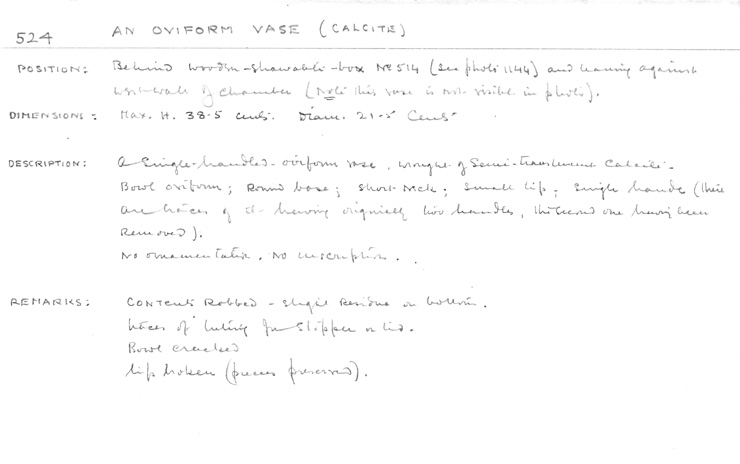 524 AN OVIFORM VASE (CALCITE)
POSITION: Behind wooden-shawabti-box No 514 (see photo 1144) and leaning against
west-wall of chamber (Note this vase is not visible in photo).
DIMENSIONS: Max. H. 38.5 cents. Diam. 21.5 cents.
DESCRIPTION: A single-handled-oviform vase, wrought of semi-translucent calcite.
Bowl oviform; Round base; short neck; small lip; single handle (there
are traces of it having originally two handles, the second one having been
removed).
No ornamentation. No inscription.
REMARKS: Contents Robbed - slight Residue on bottom.
traces of luting for stopper or lid.
Bowl cracked
lip broken (pieces preserved).